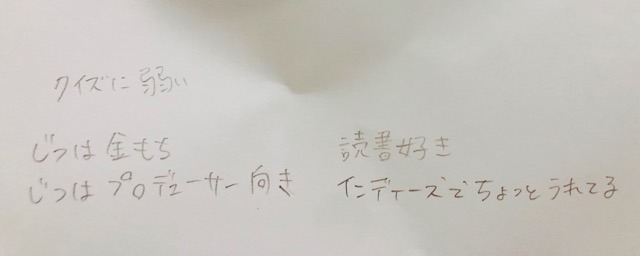 クイズに弱い
じつは金もち
読書好き
じつはプロデューサー向き
インディーズでちょっとうれてる